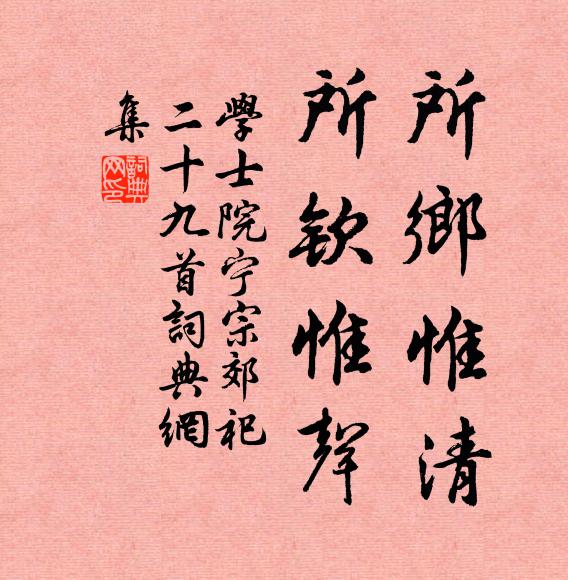 所鄉惟清
所欽惟聲
學士院宁宗郊祀
二十九首詞典網
集
詞典網印